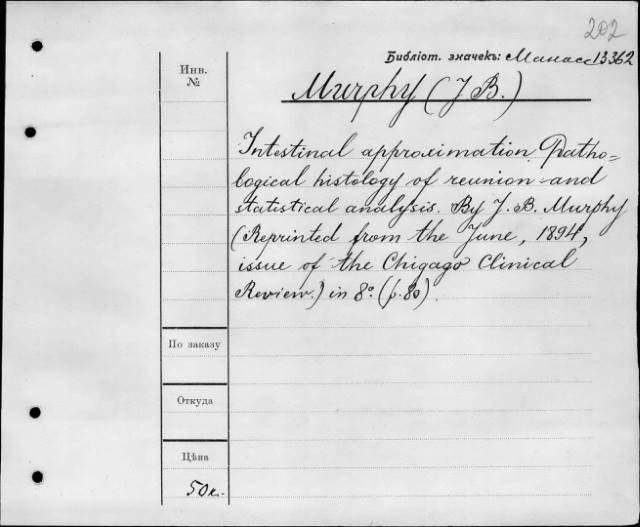 202
Библіот. значекъ: Манас 13362
Инв.
№
Murphy (J B.)
Intestinal approximation Patho=
logical histology of reunion and
statistical analysis. By J. B. Murphy
(Reprinted from the June, 1894,
issue of the Chigago Clinical
Review.) in 8º (p. 80).
По заказу
Откуда
Цѣна
50 к.